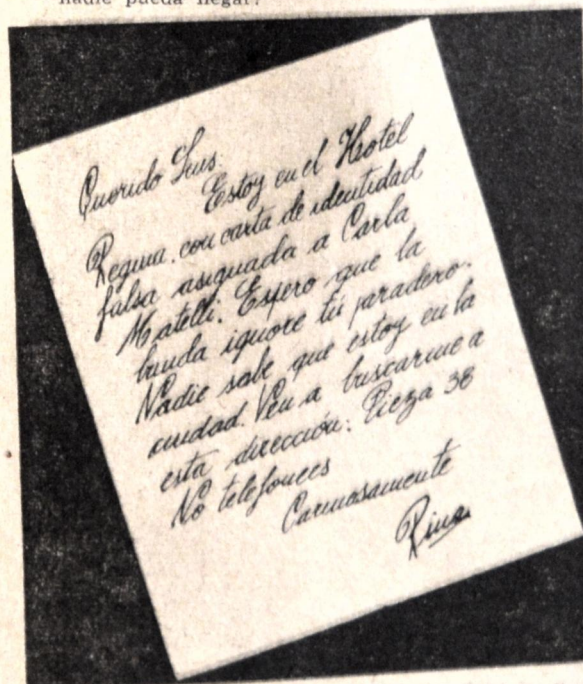 nadie pueda negar:
Querido Luis:
Estoy en el Hotel
Regina, con carta de identidad
falsa asignada a Carla
Matelli. Espero que la
banda ignore tu paradero.
Nadie sabe que estoy en la
ciudad. Ven a buscarme a
esta dirección: Pieza 38
No telefonees
Cariñosamente
Rina